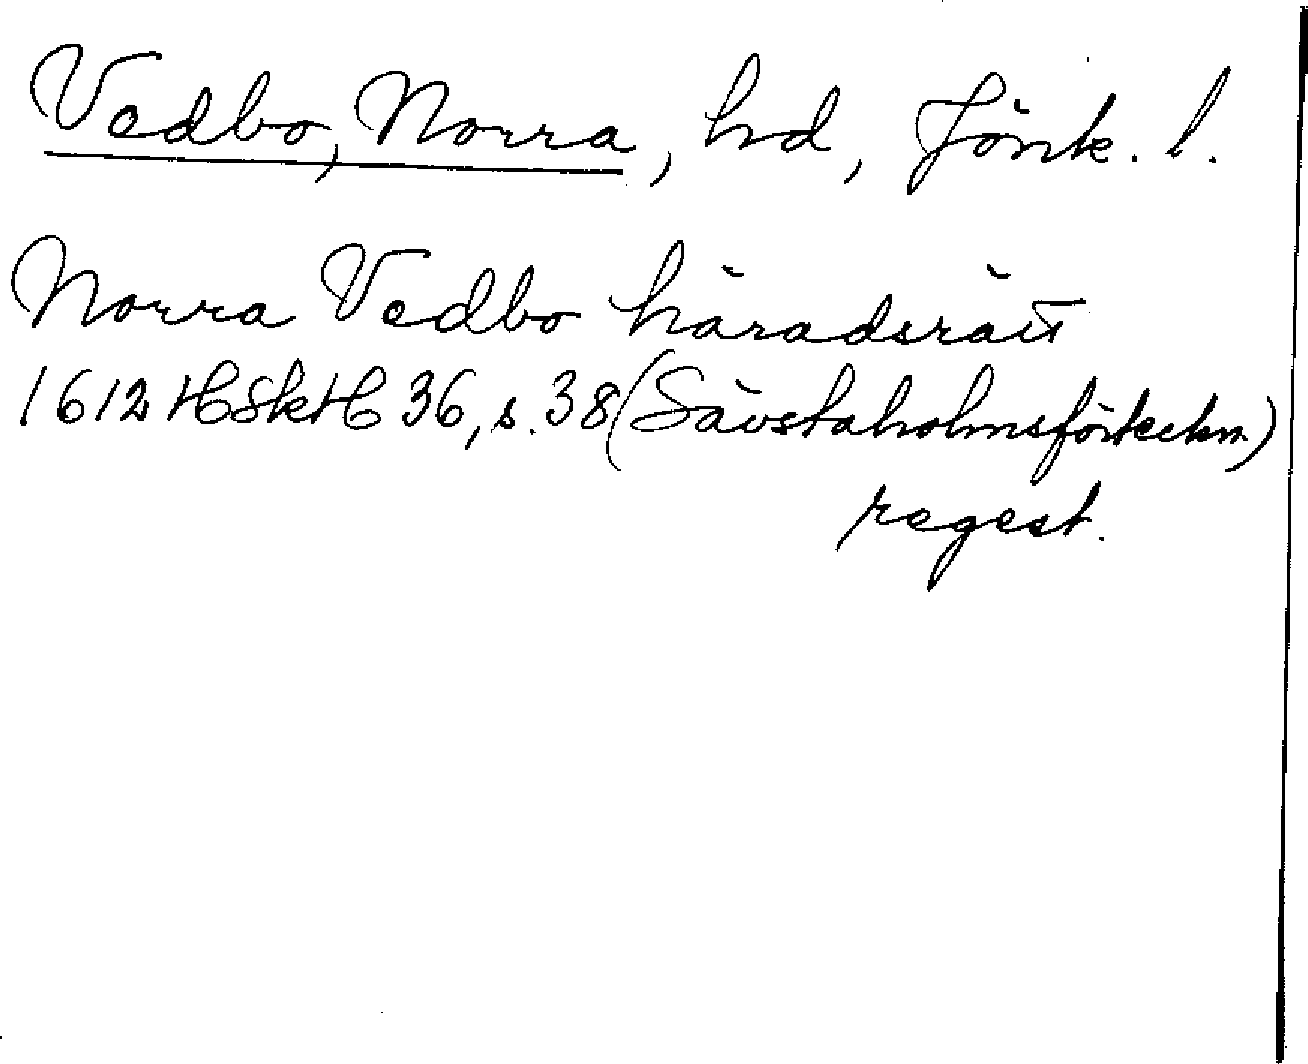 Vedbo, Norra, hd, Jönk. l.
Norra Vedbo häradsrätt
1612 HSkH 36, s. 38 (Sävstaholmsförteckn.)
regest.